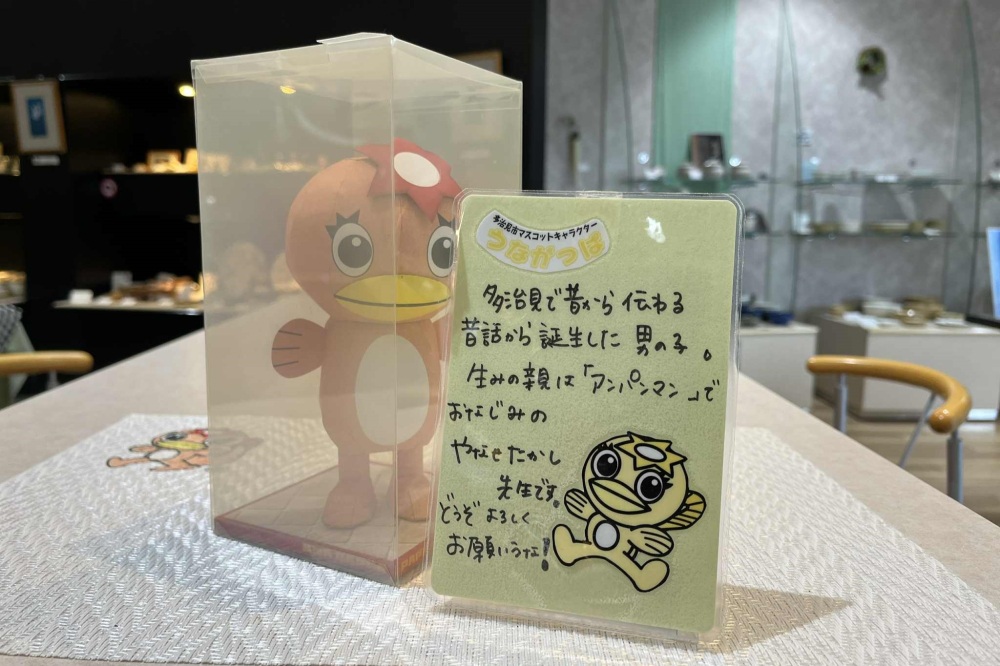 多治見市マスコットキャラクター
うながっぱ
多治見で昔から伝わる
昔話から誕生した男の子。
生みの親は「アンパンマン」で
おなじみの
やなせたかし
先生です。
どうぞよろしく
お願いうな!